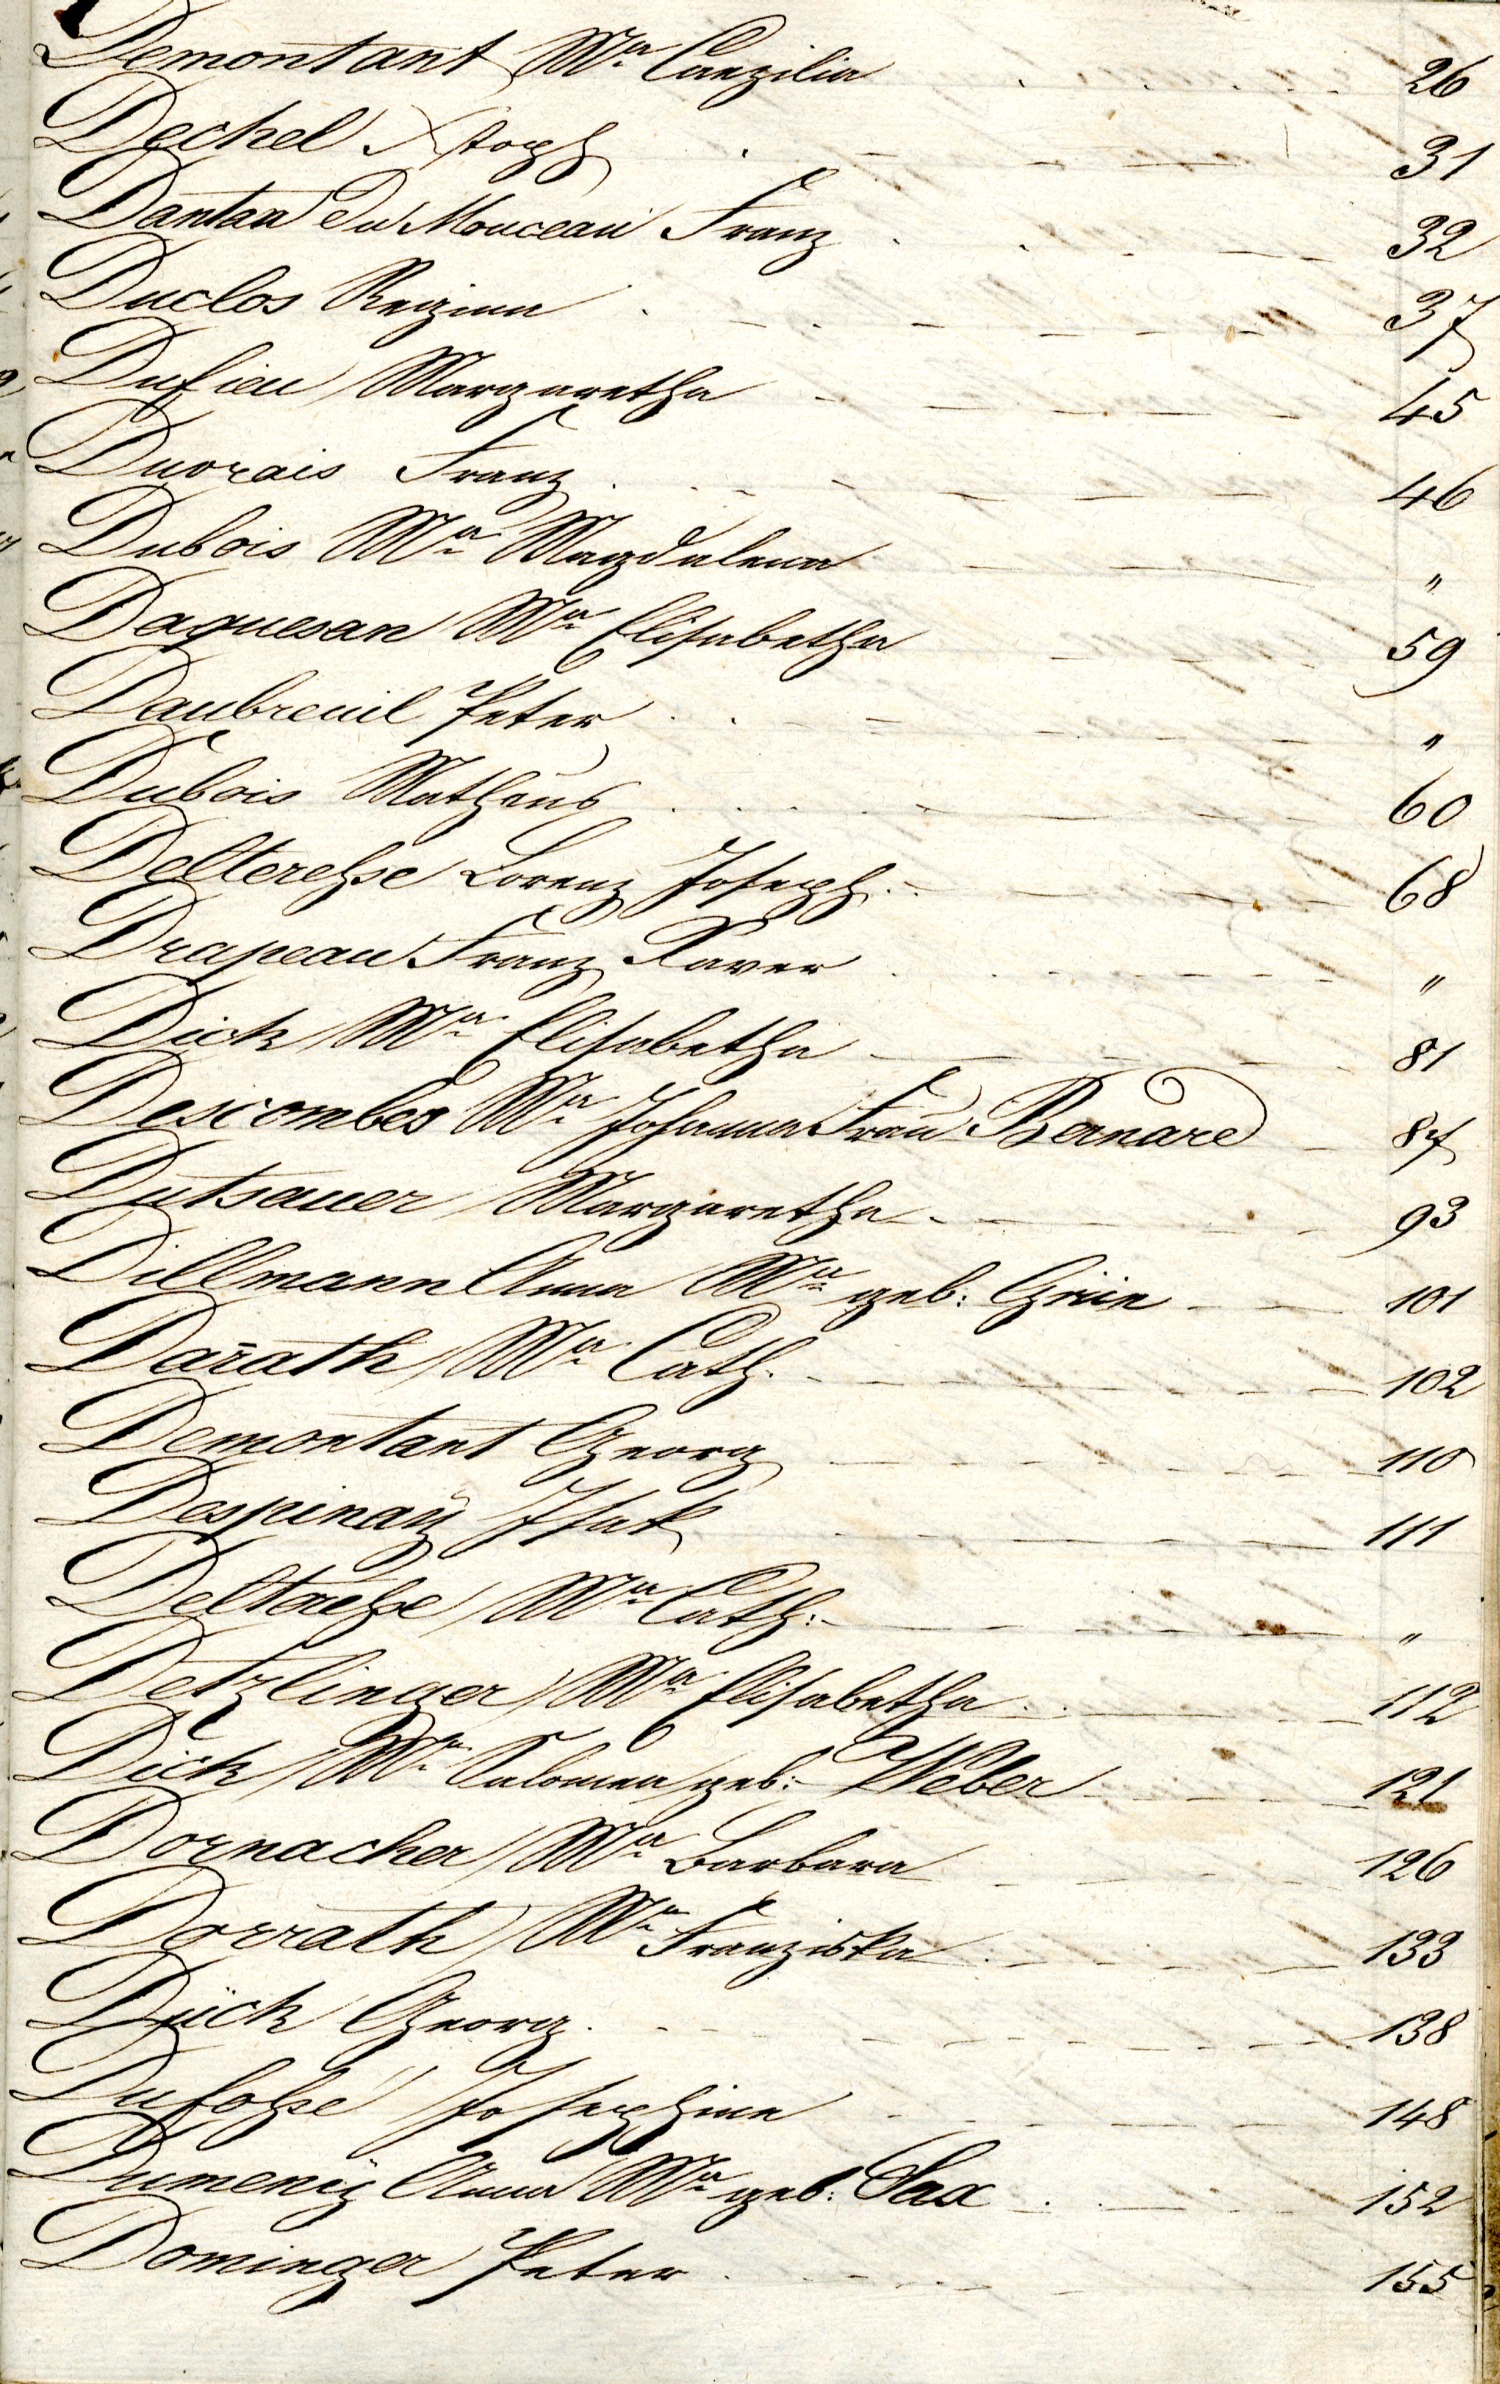 Demontant Mᵃ Caezilia 26
Dechel Xstoph 31
Dantan du Monceau Franz 32
Duclos Regina 37
Dufieu Margaretha 45
Duvrais Franz 46
Dubois Mᵃ Magdalena "
Daguesan Mᵃ Elisabetha 59
Daubreuil Peter "
Dubois Matheus 60
Delterehse Lorenz Joseph 68
Drapeau Franz Xaver "
Dick Mᵃ Elisabetha 81
Descombes Mᵃ Johanna Frau Bernare 87
Dutsauer Margaretha 93
Dillmann Anna Mᵃ geb: 101
Dar̄ath Mᵃ Cath. 102
Demontant Georg 110
Despinaÿ Isak 111
Mᵃ Cath: "
Detzlinger Mᵃ Elisabetha 112
Dick Mᵃ Salomea geb: Weber 121
Dornacher Mᵃ Barbara 126
Dorrath Mᵃ Franziska 133
Dück Georg 138
Dufohse Josephine 148
Dumenÿ Anna Mᵃ geb: Sax 152
Dominger Peter 155